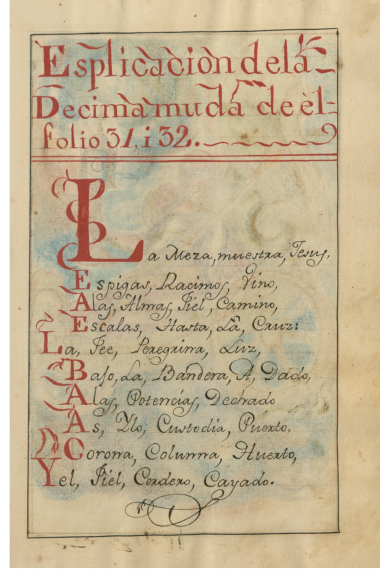 Esplicaciòn de la
Decima muda de èl
folio 31, i 32.
La Meza, muestra, Jesus,
Espigas, Racimos, Vino,
Alas, Almas, Fiel, Camino,
Escalas, Hasta, La, Cruz:
La, Fee, Peregrina, Luz,
Bajo, La, Bandera, A, Dado,
Alas, Potencias, Dechado
As, Ylo, Custodia, Puerto,
Corona, Columna, Huerto,
Yel, Fiel, Cordero, Cayado.